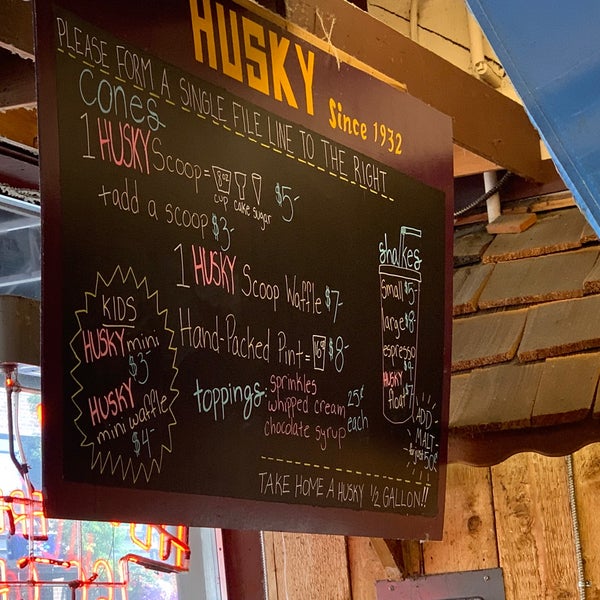 HUSKY
Since 1932
PLEASE FORM A SINGLE FILE LINE TO THE RIGHT
cones
1 HUSKY Scoop = 8oz $5-
cup cake sugar
+add a scoop $3-
1 HUSKY Scoop Waffle $7-
Hand-Packed Pint = 16oz $8-
toppings:
sprinkles
whipped cream
chocolate syrup
25¢
each
KIDS
HUSKY mini
$3-
HUSKY
mini waffle
$4-
shakes
small $5-
large $8-
espresso
$9-
HUSKY
float $7-
ADD
MALT
for just 50¢
TAKE HOME A HUSKY 1/2 GALLON!!